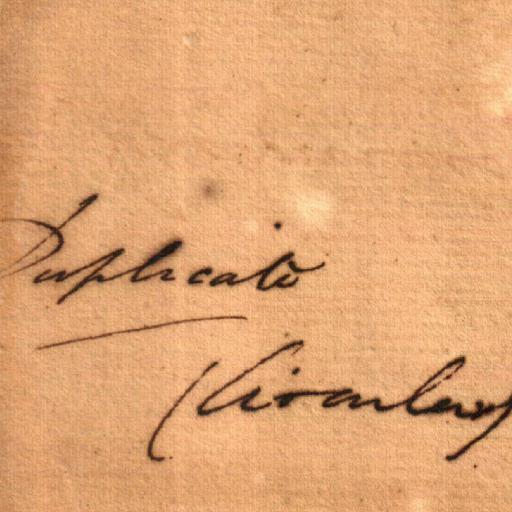 Duplicate
(Circular)